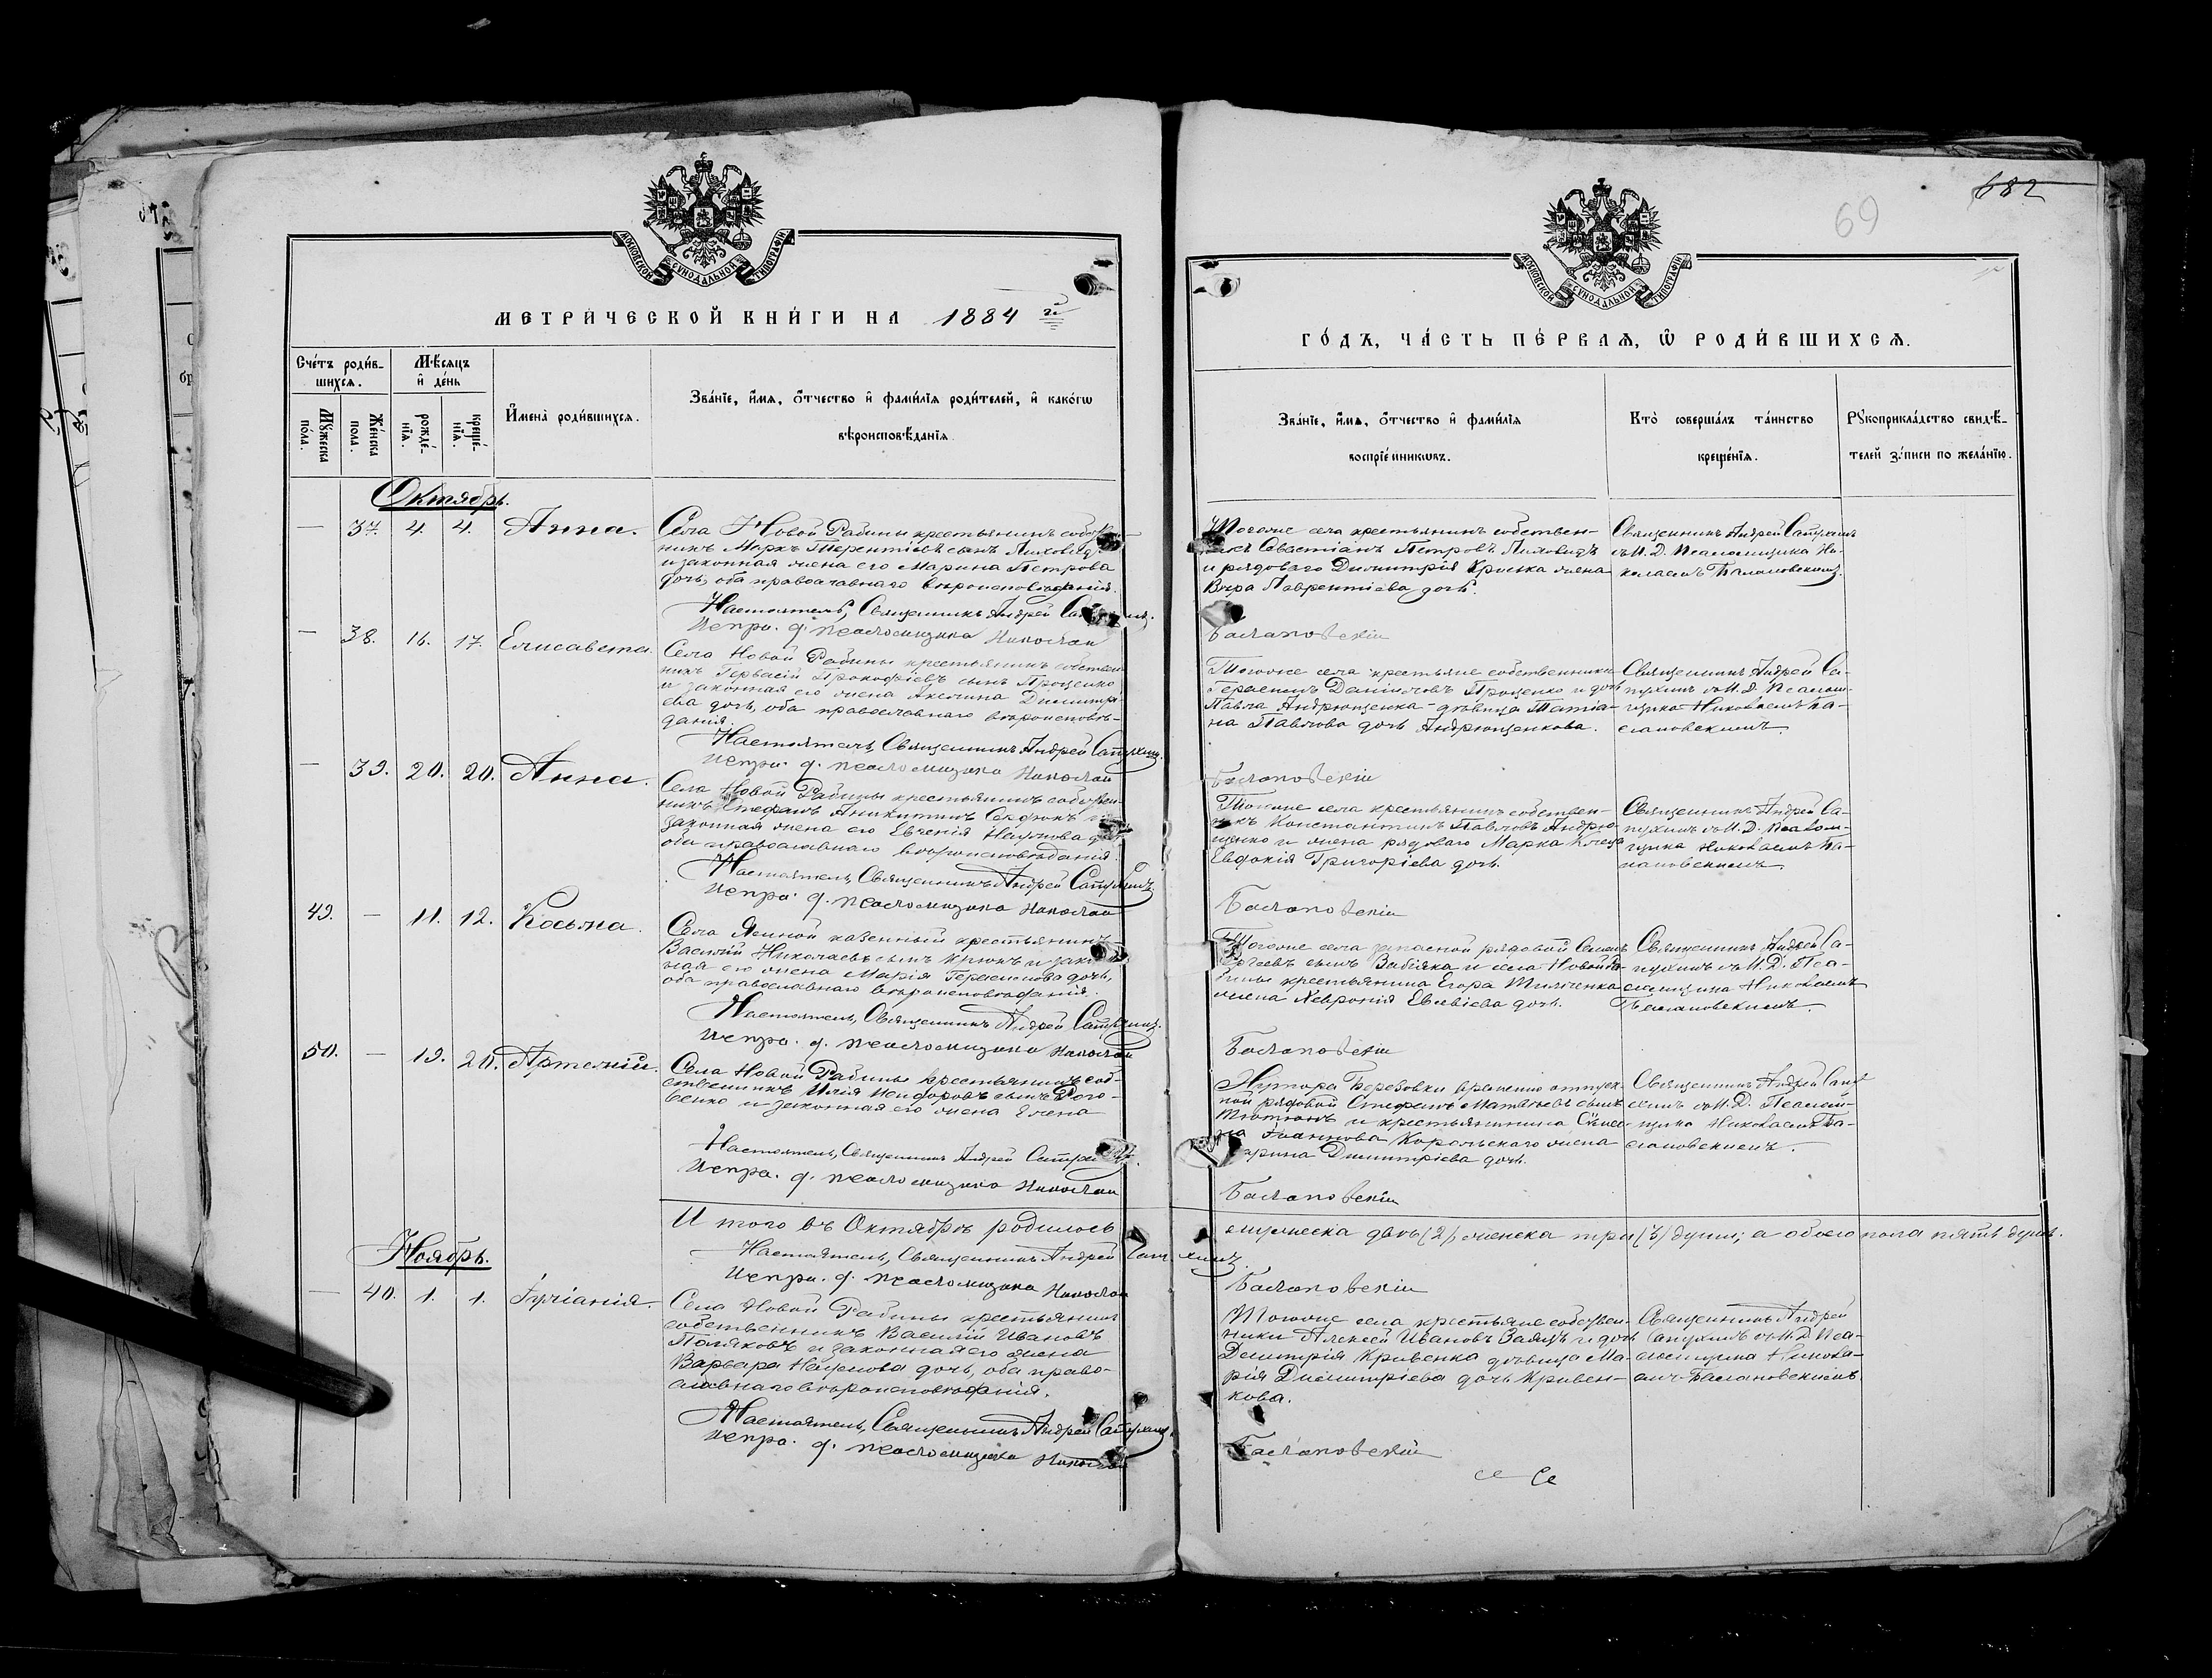 682
69
МОСКОВСКОЙ СѴНОДАЛЬНОЙ ТИПОГРАФІИ
МЕТРИЧЕСКОЙ КНИГИ НА 1884 й
Счетъ родившихся.
Мѣсяцъ и день
Мужеска пола.
Женска пола.
рожденія.
крещенія.
Имена родившихся.
Званіе, имя, отчество и фамилія родителей, и какогѡ
вѣроисповѣданія.
Октябрь.
— 37. 4. 4. Анна.
Села Новой Рабины крестьянинъ собствен-
никъ Маркъ Терентіевъ сынъ Лиховидъ
и законная жена его Марина Петрова
дочь, оба православнаго вѣроисповѣданія.
Настоятель, Священникъ Андрей Сапухинъ.
Испра. д. псаломщика Николай
— 38. 16. 17. Елисавета.
Села Новой Рабины крестьянинъ собствен-
никъ Гервасій Прокофіевъ сынъ Проценко
и законная его жена Акилина Димитрі-
ева дочь, оба православнаго вѣроисповѣ-
данія.
Настоятель, Священникъ Андрей Сапухинъ.
Испра. д. псаломщика Николай
— 39. 20. 20. Анна.
Села Новой Рабины крестьянинъ собствен-
никъ Стефанъ Аникитинъ Сердюкъ и
законная жена его Евгенія Наумова дочь
оба православнаго вѣроисповѣданія.
Настоятель, Священникъ Андрей Сапухинъ
Испра. д. псаломщика Николай
49. — 11. 12. Косьма.
Села Ямной казенный крестьянинъ
Василій Николаевъ сынъ Крюкъ и закон-
ная его жена Марія Герасимова дочь,
оба православнаго вѣроисповѣданія.
Настоятель, Священникъ Андрей Сапухинъ.
Испра. д. псаломщика Николай
50. — 19. 20. Артемій.
Села Новой Рабины крестьянинъ соб-
ственникъ Илія Исидоровъ сынъ
и законная его жена Елена
Настоятель, Священникъ Андрей Сапухинъ.
Испра. д. псаломщика Николай
Итого въ Октябрѣ родилось
Настоятель, Священникъ Андрей Сапухинъ.
Испра. д. псаломщика Николай
Ноябрь.
— 40. 1. 1. Іуліанія.
Села Новой Рабины крестьянинъ
собственникъ Василій Ивановъ
Поляковъ и законная его жена
Варвара Наумова дочь, оба право-
славнаго вѣроисповѣданія.
Настоятель, Священникъ Андрей Сапухинъ.
Испра. д. псаломщика Николай
МОСКОВСКОЙ СѴНОДАЛЬНОЙ ТИПОГРАФІИ
ГОДЪ, ЧАСТЬ ПЕРВАЯ, Ѡ РОДИВШИХСЯ.
Званіе, имя, отчество и фамилія
воспріемниковъ.
Кто совершалъ таинство
крещенія.
Рукоприкладство свидѣ-
телей записи по желанію.
Тогоже села крестьянинъ собствен-
никъ Севастіанъ Петровъ Лиховидъ
и рядоваго Димитрія жена
Вѣра Лаврентіева дочь.
Священникъ Андрей Сапухинъ
съ И. Д. Псаломщика Ни-
колаемъ Баслановскимъ.
Баслановскій
Тогоже села крестьяне собственники
Герасимъ Даніиловъ Проценко и дочь
Павла Андрющенка - дѣвица Татіа-
на Павлова дочь Андрющенкова.
Священникъ Андрей Са-
пухинъ съ И. Д. Псалом-
щика Николаемъ Ба-
слановскимъ.
Баслановскій
Тогоже села крестьянинъ собствен-
никъ Константинъ Павловъ Андрю-
щенко и жена рядоваго Марка
Евдокія Григоріева дочь.
Священникъ Андрей Са-
пухинъ съ И. Д. Псалом-
щика Николаемъ Ба-
слановскимъ
Баслановскій
Тогоже села запасной рядовой
Сергеевъ сынъ Забіяка и села Новой Ра-
бины крестьянина Егора жена
Хевронія Евсевіева дочь.
Священникъ Андрей Са-
пухинъ съ И. Д. Пса-
ломщика Николаемъ
Баслановскимъ.
Баслановскій
Хутора Березовки временно отпуск-
ной рядовой Стефанъ Матвѣевъ сынъ
и крестьянина
Іоаннова Корольскаго жена
Марина Димитріева дочь.
Священникъ Андрей Сапу-
хинъ съ И. Д. Псалом-
щика Николаемъ Ба-
слановскимъ.
Баслановскій
мужеска двѣ (2), женска три (3) души; а обоего пола пять душъ.
Баслановскій
Тогоже села крестьяне собствен-
ники Алексей Ивановъ Заяцъ и дочь
Димитрія Кривенка дѣвица Ма-
рія Димитріева дочь Кривен-
кова.
Священникъ Андрей
Сапухинъ съ И. Д. Пса-
ломщика Никола-
емъ Баслановскимъ
Баслановскій